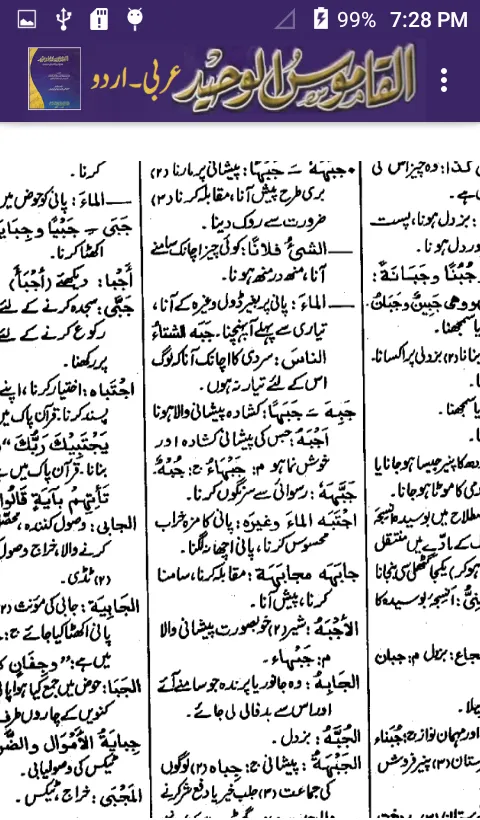 99% 7:28 PM
القاموس الوحید
عربی - اردو
کذا: وہ چیز اس کی
ہے۔
: بزدل ہونا، پست
اور دل ہونا۔
وجُبْنًا وجَبَانَةً:
ـهو وهي جَبِينٌ وجَبَانٌ
نا سمجھنا۔
بنانا (۲) بزدلی پر اکسانا۔
نا سمجھنا۔
دودھ کا پنیر جیسا ہو جانا یا
کا موٹا ہو جانا۔
اصطلاح میں بوسیدہ نسیجہ
کے مادّے میں منتقل
: بزدل م: جبان
اور مہمان نواز ج: جُبَناء
(۳) پنیر فروش
• جَبَهَهُ ـَ جَبْهًا: پیشانی پر مارنا (۲)
بری طرح پیش آنا، مقابلہ کرنا (۳)
ضرورت سے روک دینا۔
— الشيءُ فلانًا: کوئی چیز اچانک سامنے
آنا، منھ در منھ ہونا۔
— الماءَ: پانی پر بغیر ڈول وغیرہ کے آنا،
تیاری سے پہلے آ پہنچنا۔ جبه الشتاءُ
الناسَ: سردی کا اچانک آنا کہ لوگ
اس کے لئے تیار نہ ہوں۔
جَبِهَ ـَ جَبَهًا: کشادہ پیشانی والا ہونا
أَجْبَهُ: جس کی پیشانی کشادہ اور
خوش نما ہو م: جَبْهَاءُ ج: جُبْهٌ۔
جَبَّهَهُ: رسوائی سے سرنگوں کرنا۔
اجْتَبَه الماءَ وغیرَہ: پانی کا مزہ خراب
محسوس کرنا، پانی اچھا نہ لگنا۔
جابَهَه مجابهةً: مقابلہ کرنا، سامنا
کرنا، پیش آنا۔
الأَجْبَهُ: شیر (۲) خوبصورت پیشانی والا
م: جَبْهاء۔
الجابِهُ: وہ جانور یا پرندہ جو سامنے آئے
اور اس سے بدفالی لی جائے۔
الجُبَّهُ: بزدل۔
الجَبْهَةُ: پیشانی ج: جباه (۲) لوگوں
کی جماعت (۳) طلب خیر یا دفع شر کرنے
کرنا۔
— الماءَ: پانی کو حوض میں
جَبَى ـِ جَبْيًا وجِبَايَ
اکٹھا کرنا۔
أَجْبَا: دیکھئے (أَجْبَأَ)
جَبَّى: سجدہ کرنے کے لئے
رکوع کرنے کے لئے
پر رکھنا۔
اجْتَباه: اختیار کرنا، اپنے
پسند کرنا۔ قرآن پاک میں
يَجْتَبِيكَ رَبُّكَ "
بنانا۔ قرآن پاک میں ہے
تَأْتِهِمْ بِآيَةٍ قَالُوا
الجابي: وصول کنندہ، محصّل
کرنے والا، خراج وصول
(۲) ٹڈی۔
الجَابِيَة: جابی کی مؤنث (۲)
پانی اکٹھا کیا جائے ج:
میں ہے: "وجِفَانٍ كَ
الجَبَا: حوض میں جمع کیا ہوا پانی
کنویں کے چاروں طرف
جِبايةُ الأَمْوَالِ والضَّرَ
ٹیکس کی وصولیابی۔
المَجْبَى: خراج، ٹیکس۔